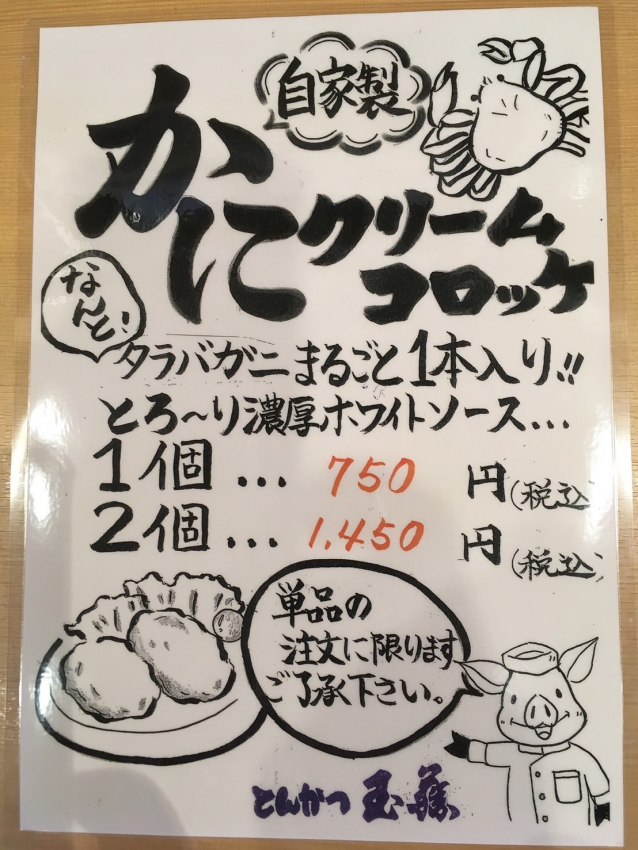 自家製
かに
クリーム
コロッケ
なんと、
タラバガニまるごと1本入り!!
とろ～り濃厚ホワイトソース...
1個 ... 750 円(税込)
2個 ... 1,450 円(税込)
単品の
注文に限ります
ご了承下さい。
とんかつ 玉藤